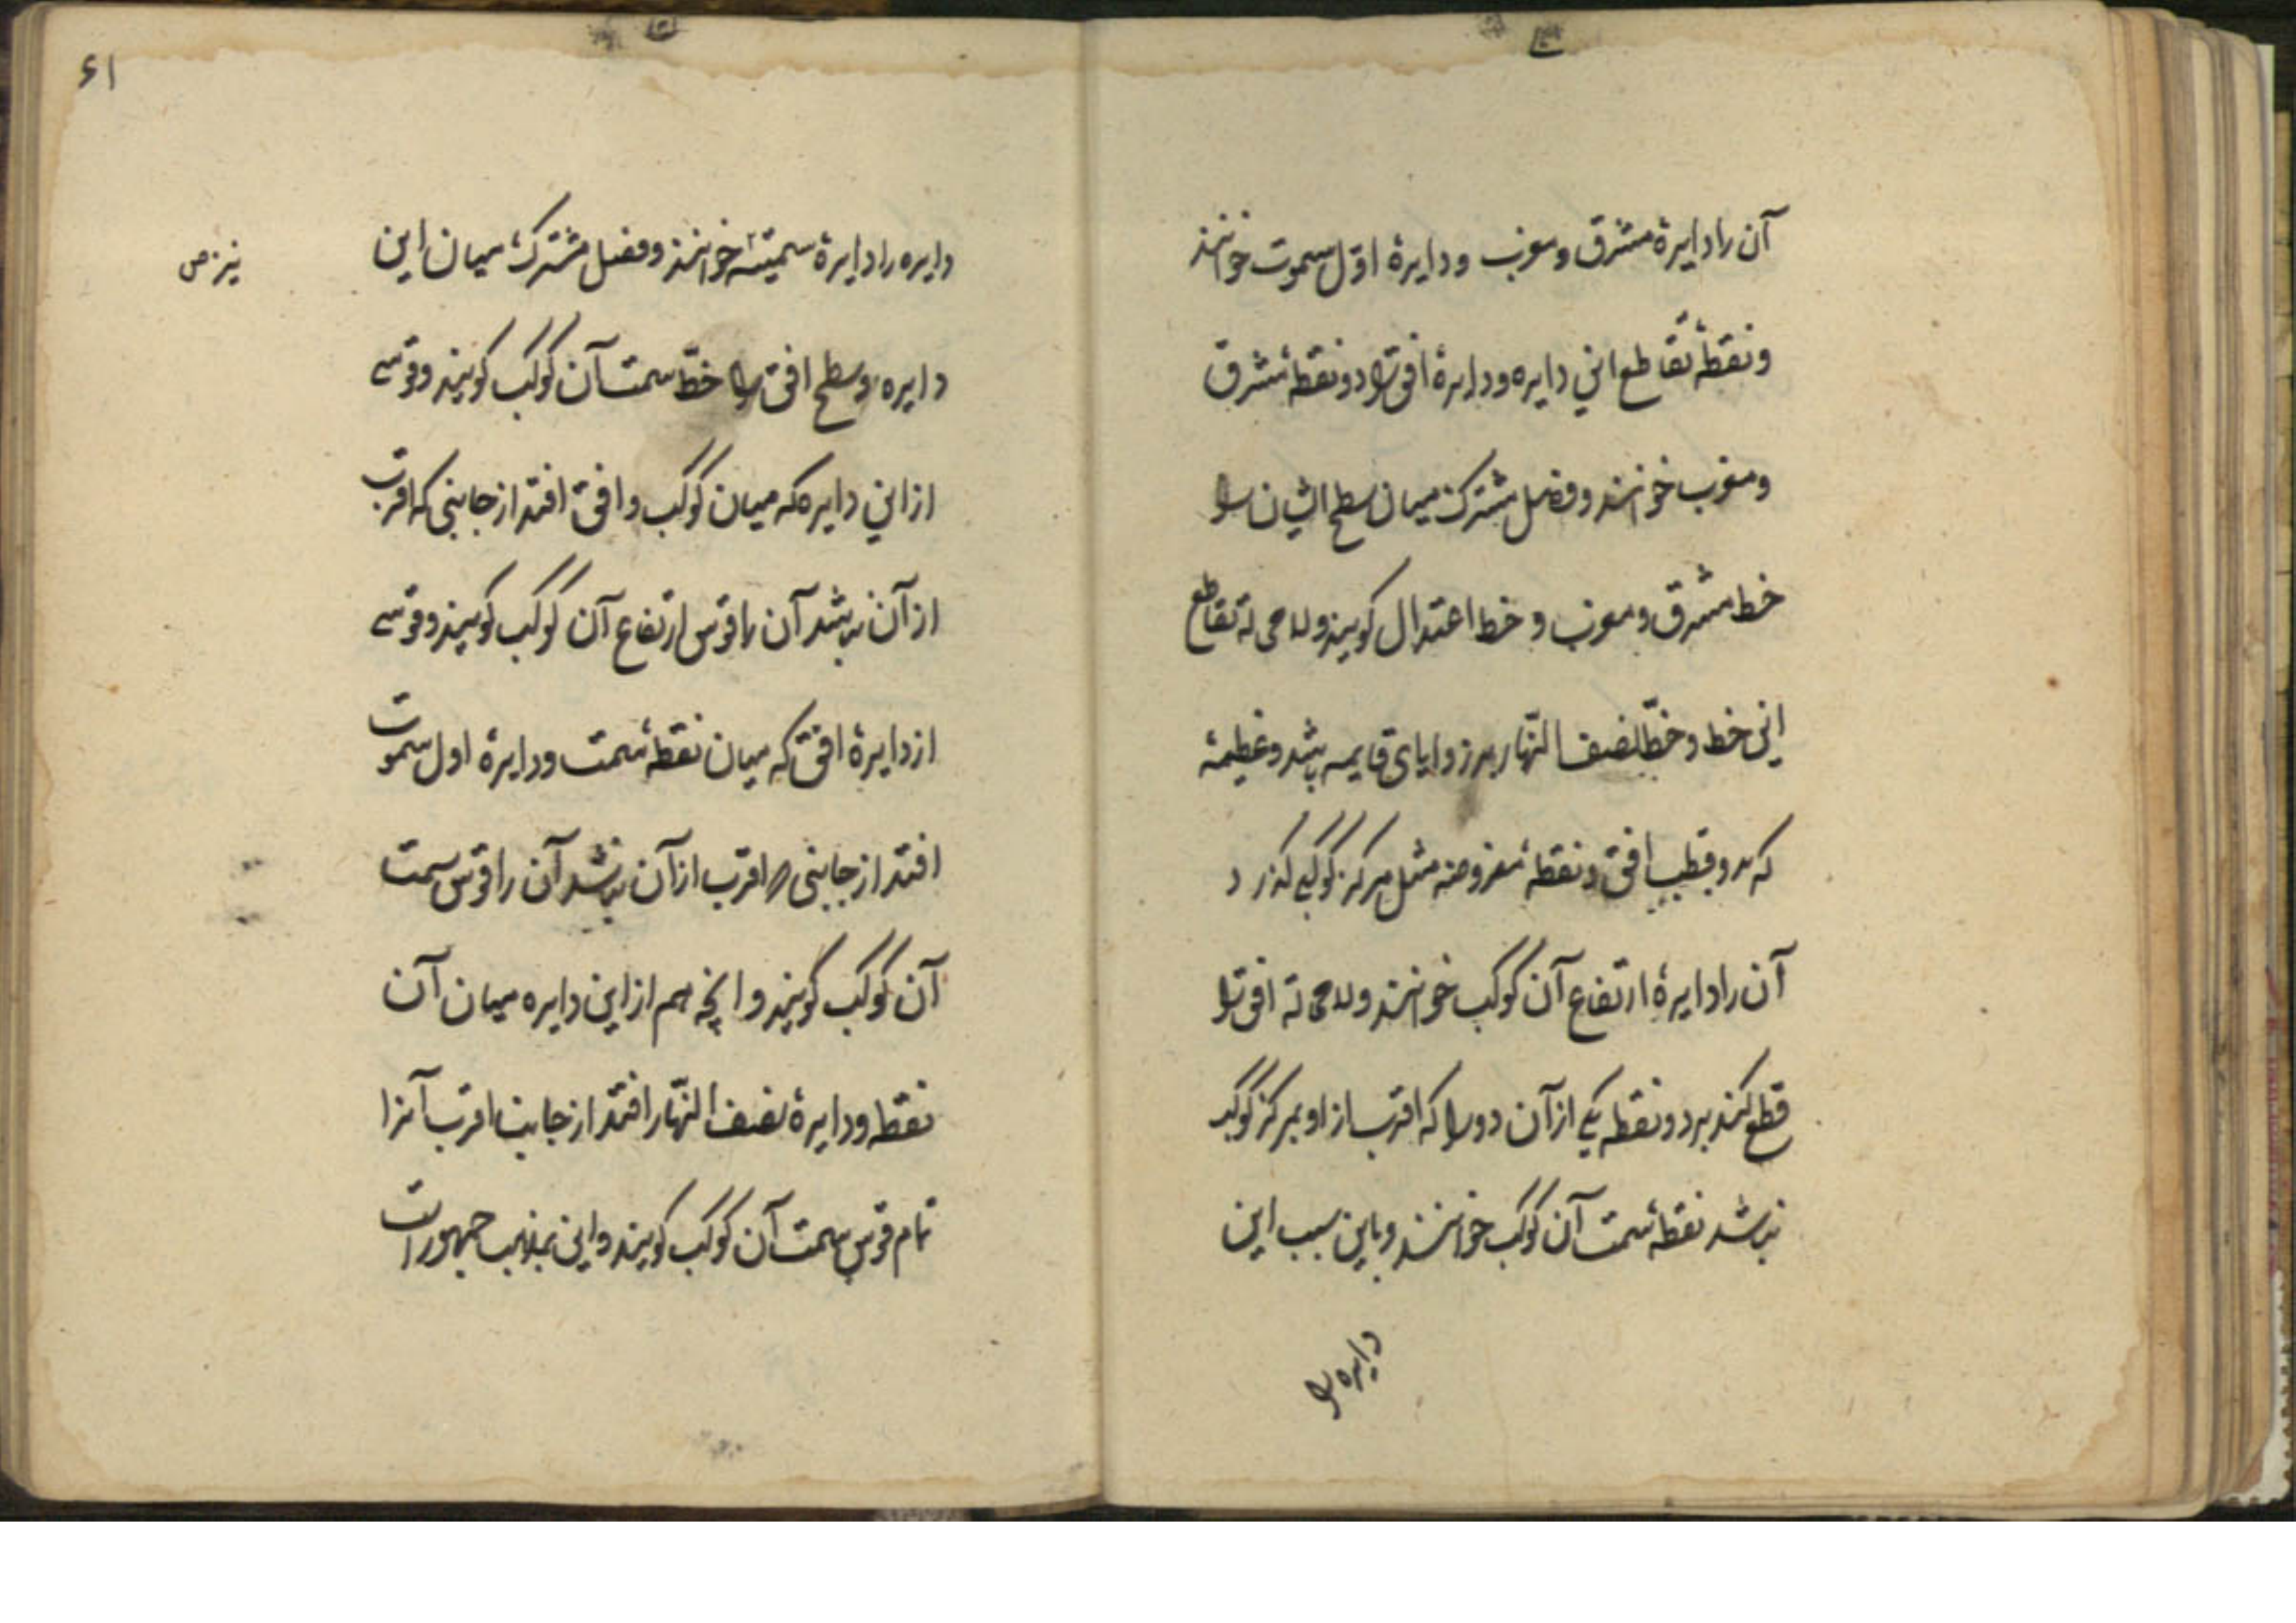 آن را دایرهٔ مشرق و مغرب و دایرهٔ اوّل سموت خوانند
و نقطهٔ تقاطع این دایره و دایرهٔ افق را دو نقطهٔ مشرق
و مغرب خوانند و فصل مشترک میان سطح ایشان را
خط مشرق و مغرب و خط اعتدال کویند و لا محاله تقاطع
این خط و خطّ نصف النّهار بر زوایای قایمه باشد و عظیمهٔ
که بدو قطب افق و نقطهٔ مفروضه مثل مرکز کوکبی کذرد
آن را دایرهٔ ارتفاع آن کوکب خوانند و لا محاله افق را
قطع کند بر دو نقطه یکی از آن دو را که اقرب از او بمرکز کوکب
باشد نقطهٔ سمت آن کوکب خوانند و باین سبب این
دایره را
۶۱
دایره را دایرهٔ سمتیّه خوانند و فصل مشترک میان این
نیز ص
دایره و سطح افق را خطّ سمت آن کوکب کویند و قوسی
از این دایره که میان کوکب و افق افتد از جانبی که اقرب
از آن نباشد آن را قوس ارتفاع آن کوکب کویند و قوسی
از دایرهٔ افق که میان نقطهٔ سمت و دایرهٔ اول سموت
افتد از جانبی که اقرب از آن نباشد آن را قوس سمت
آن کوکب کویند و انچه هم از این دایره میان آن
نقطه و دایرهٔ نصف النّهار افتد از جانب اقرب آنرا
تمام قوس سمت آن کوکب کویند و این بمذهب جمهور است